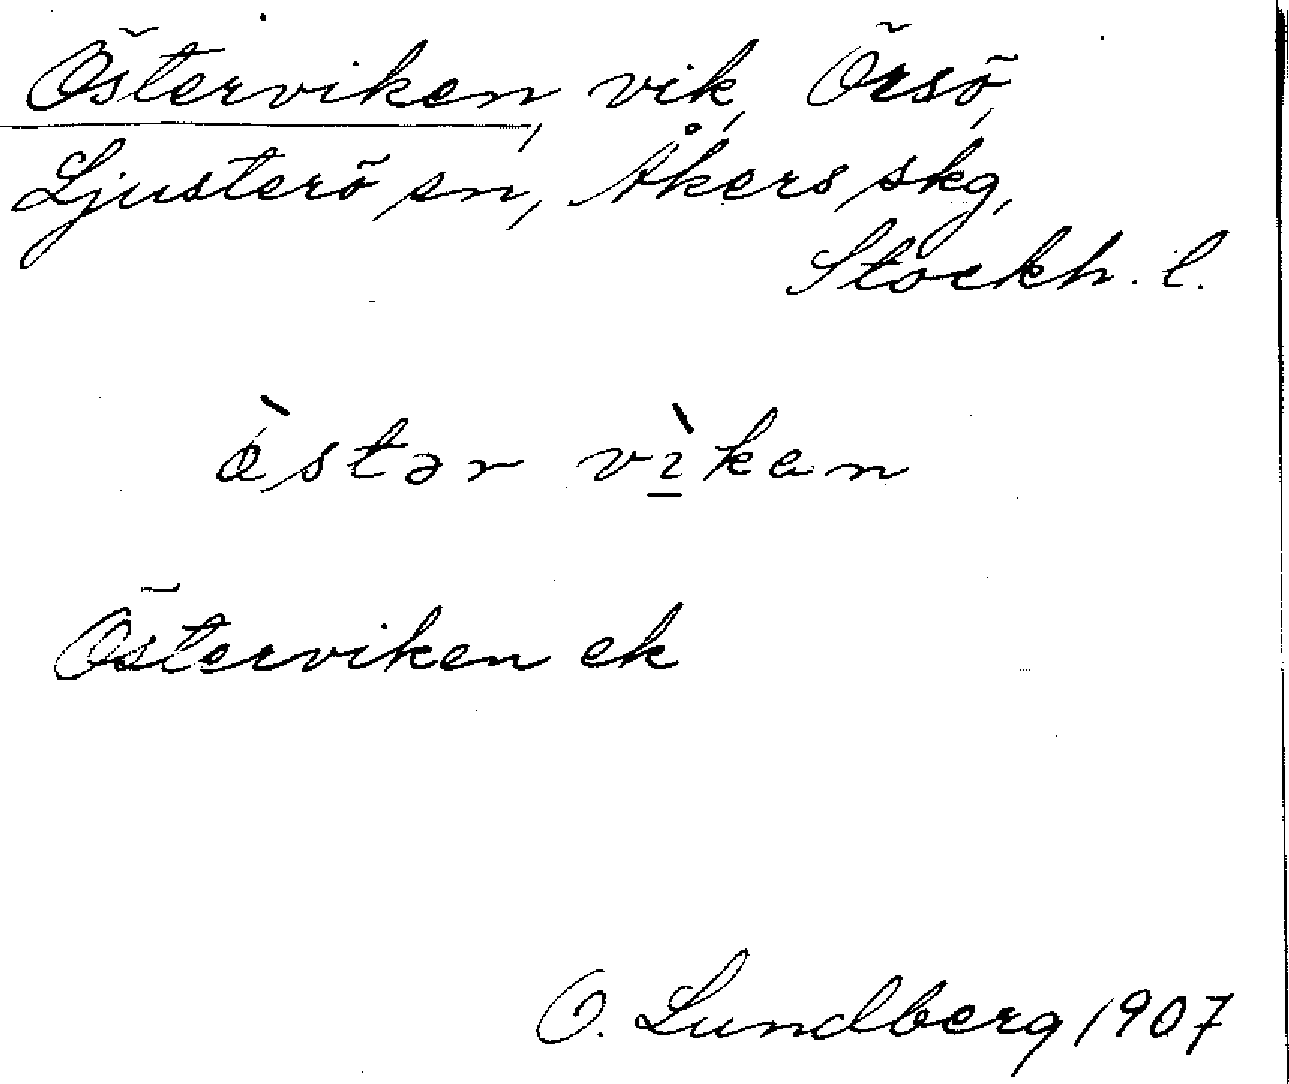 Österviken, vik, Örsö,
Ljusterö sn, Åkers skg,
Stockh. l.
ø̀stər vì̱kan
Österviken ek
O. Lundberg 1907